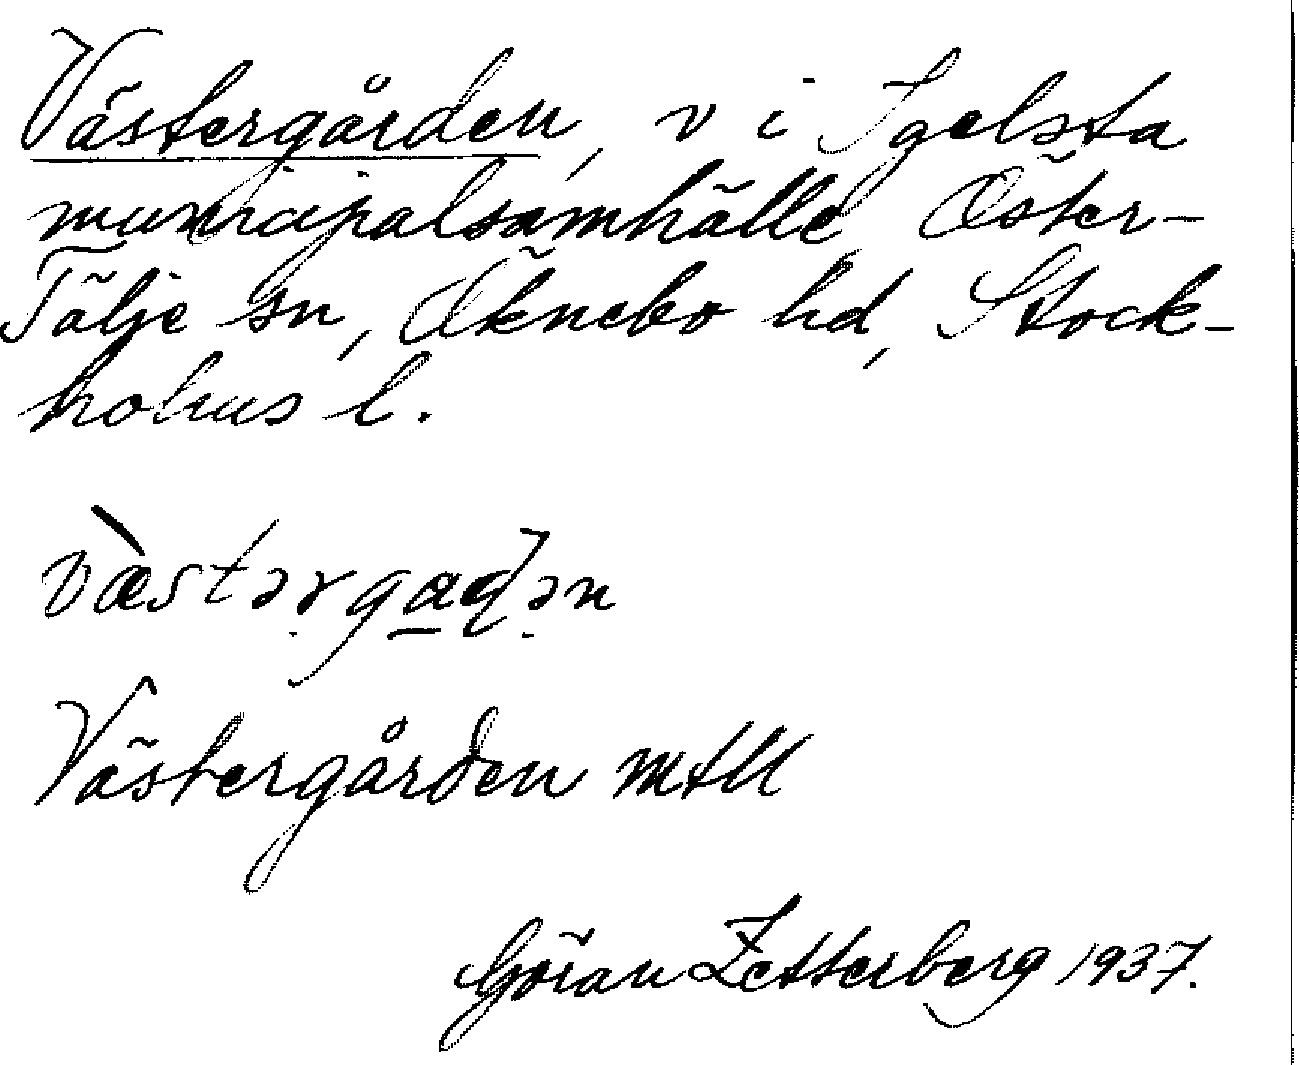 Västergården, v i Igelsta
municipalsamhälle, Öster-
Tälje sn, Öknebo hd, Stock-
holms l.
Västergården mtll
Göran Zetterberg 1937.